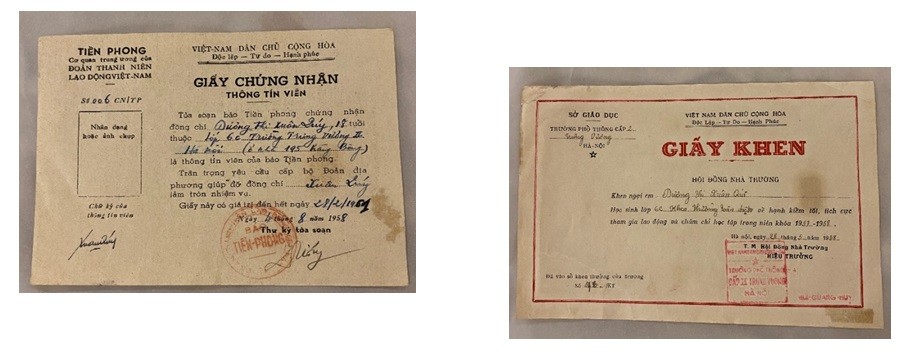 TIỀN PHONG
Cơ quan trung ương của
ĐOÀN THANH NIÊN
LAO ĐỘNG VIỆT-NAM
Số 006 CN/TP
Nhân dạng
hoặc ảnh chụp
Chữ ký của
thông tin viên
VIỆT-NAM DÂN CHỦ CỘNG HÒA
Độc lập — Tự do — Hạnh phúc
GIẤY CHỨNG NHẬN
THÔNG TÍN VIÊN
Tòa soạn báo Tiền phong chứng nhận
đồng chí Dương thị Xuân Quý, 18 tuổi
thuộc lớp 6C Trường Trưng Vương
Hà Nội (ở nhà 195 Hàng Bông)
là thông tin viên của báo Tiền phong.
Trân trọng yêu cầu cấp bộ Đoàn địa
phương giúp đỡ đồng chí Xuân Quý
làm tròn nhiệm vụ.
Giấy này có giá trị đến hết ngày 28/2/1959
Ngày 4 tháng 8 năm 1958
Thư ký tòa soạn
BÁO
TIỀN-PHONG
SỞ GIÁO DỤC
TRƯỜNG PHỔ THÔNG CẤP 2
Trưng Vương
HÀ-NỘI
VIỆT NAM DÂN CHỦ CỘNG HÒA
Độc Lập — Tự Do — Hạnh Phúc
GIẤY KHEN
HỘI ĐỒNG NHÀ TRƯỜNG
Khen ngợi em Dương thị Xuân Quí
Học sinh lớp 6C về hạnh kiểm tốt, tích cực
tham gia lao động và chăm chỉ học tập trong niên khóa 1957-1958.
Hà nội, ngày 25 tháng 5 năm 1958
T. M. Hội Đồng Nhà Trường
HIỆU TRƯỞNG
TRƯỜNG PHỔ THÔNG
CẤP II TRƯNG VƯƠNG
HÀ NỘI
Đã vào sổ khen thưởng của trường
Số KT